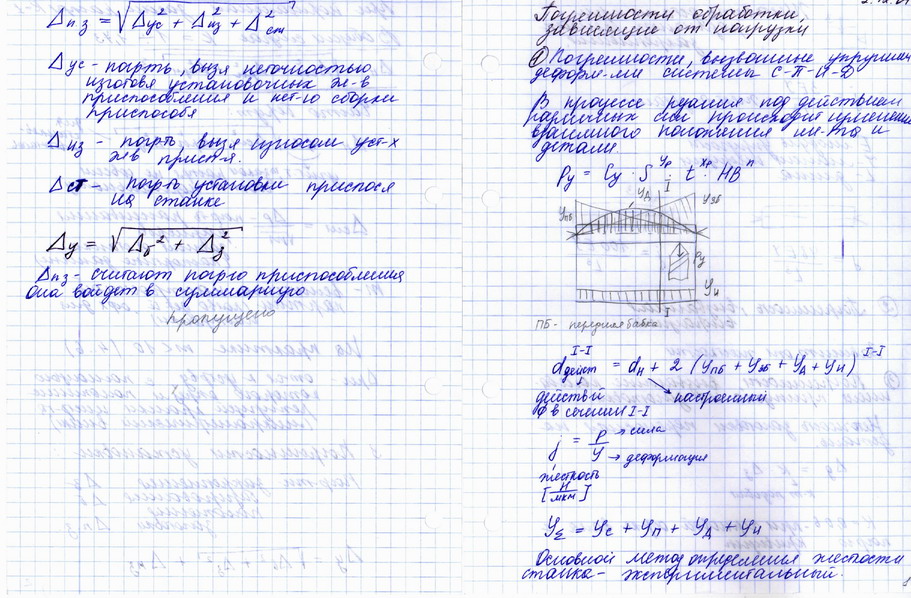 Δпз = √Δус² + Δиз² + Δст²
Δус - погрть, вызя неточностью
изготовя установочных эл-в
приспособления и нет-ю сборки
приспособя
Δиз - погрть, выз износом уст-х
эл-в присп-я.
Δст - погрть установки приспося
на станке
Δу = √Δб² + Δз²
Δпз - считают погрю приспособления
она войдет в суммарную
пропущено
Погрешности обработки,
зависящие от нагрузки
① Погрешности, вызванные упругими
деформ-ми системы С-П-И-Д
В процессе резания под действием
различных сил происходит изменение
взаимного положения ин-та и
детали.
Py = Cy · S^yp · t^xp · HB^n
I
yпб yд yзб
Py
yи
I
ПБ - передняя бабка
dдейст^I-I = dн + 2 (yпб + yзб + yд + yи)^I-I
действ настроенный
ф в сечении I-I
j = P/y → сила
→ деформация
жесткость
[Н/мкм]
yΣ = yс + yп + yд + yи
Основной метод определения жесткости
станка - экспериментальный.